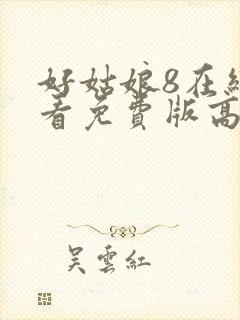 好姑娘8在线
看免费版高
吴云红